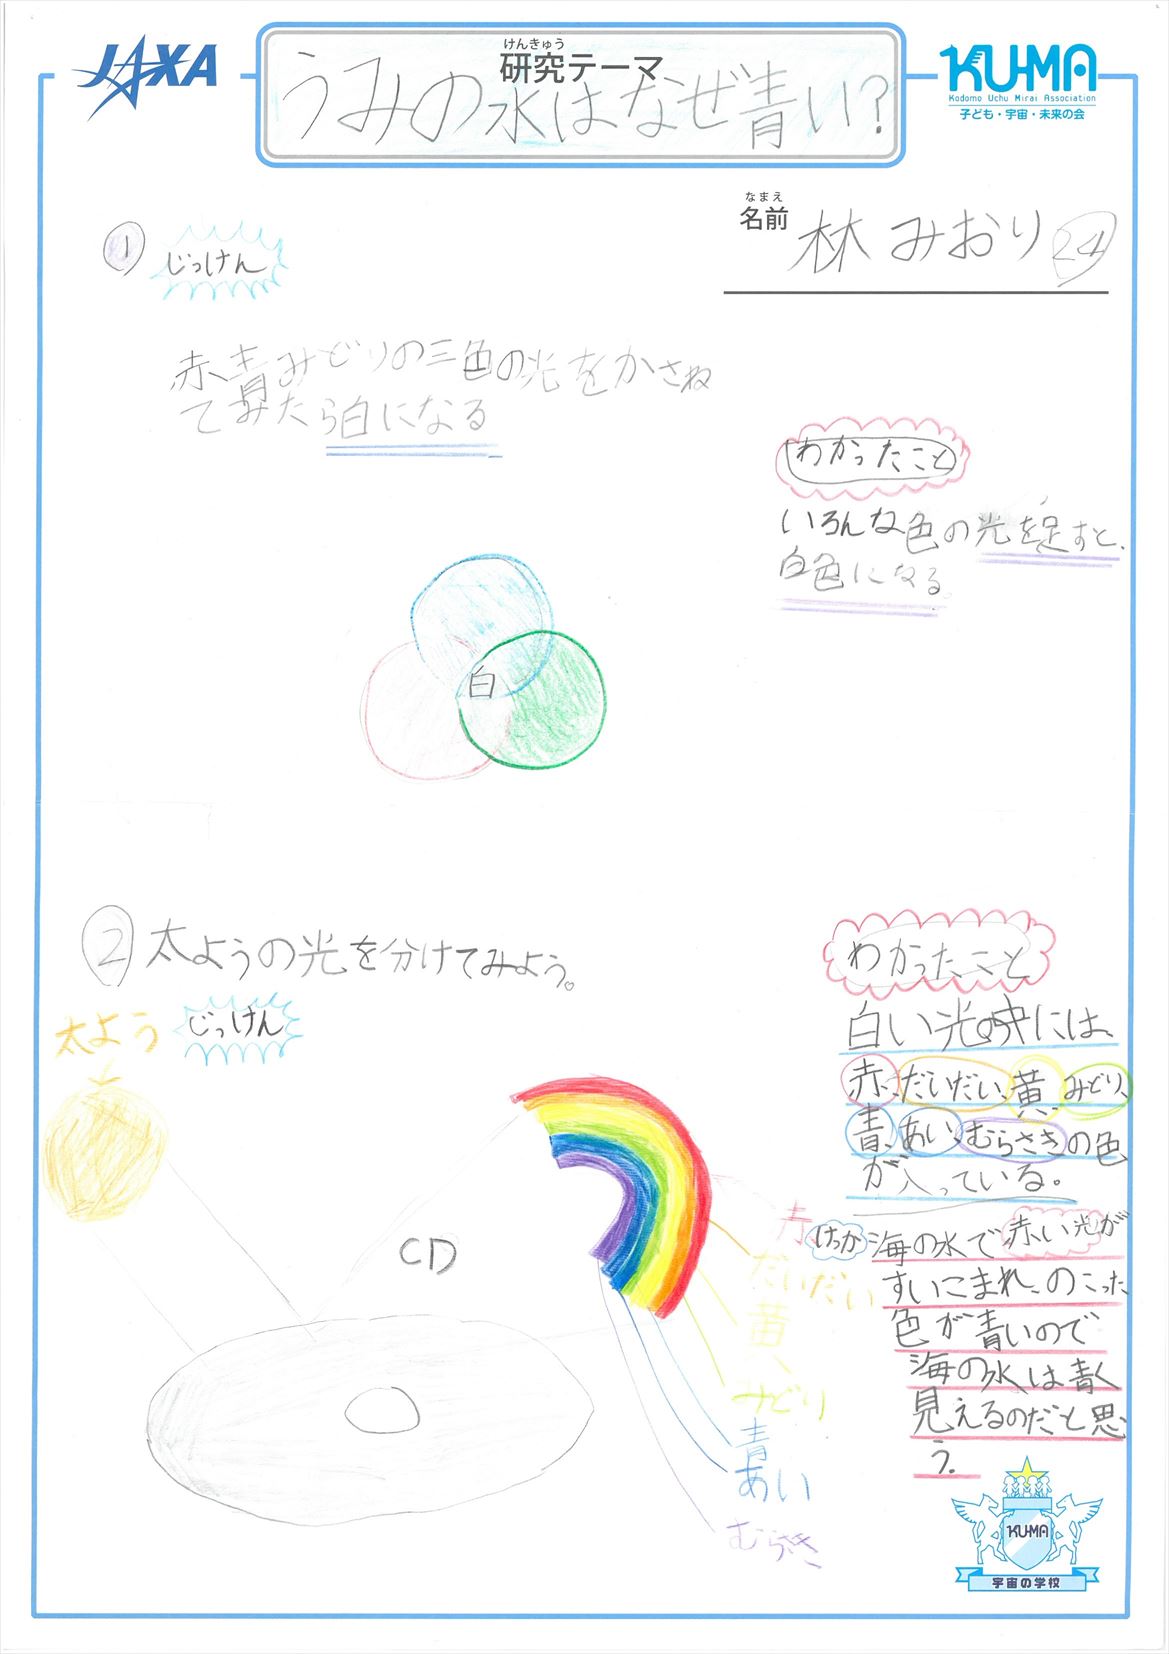 JAXA
けんきゅう
研究テーマ
うみの水はなぜ青い?
KU-MA
Kodomo Uchu Mirai Association
子ども・宇宙・未来の会
なまえ
名前
林みおり 24
1 じっけん
赤、青みどりの三色の光をかさね
てみたら白になる
わかったこと
いろんな色の光を足すと、
白色になる。
白
2 太ようの光を分けてみよう。
太よう
じっけん
CD
赤
だいだい
黄
みどり
青
あい
むらさき
わかったこと
白い光の中には、
赤、だいだい、黄、みどり、
青、あい、むらさきの色
が入っている。
けっか
海の水で、赤い光が
すいこまれ、のこった
色が青いので
海の水は青く
見えるのだと思
う。
KU-MA
宇宙の学校